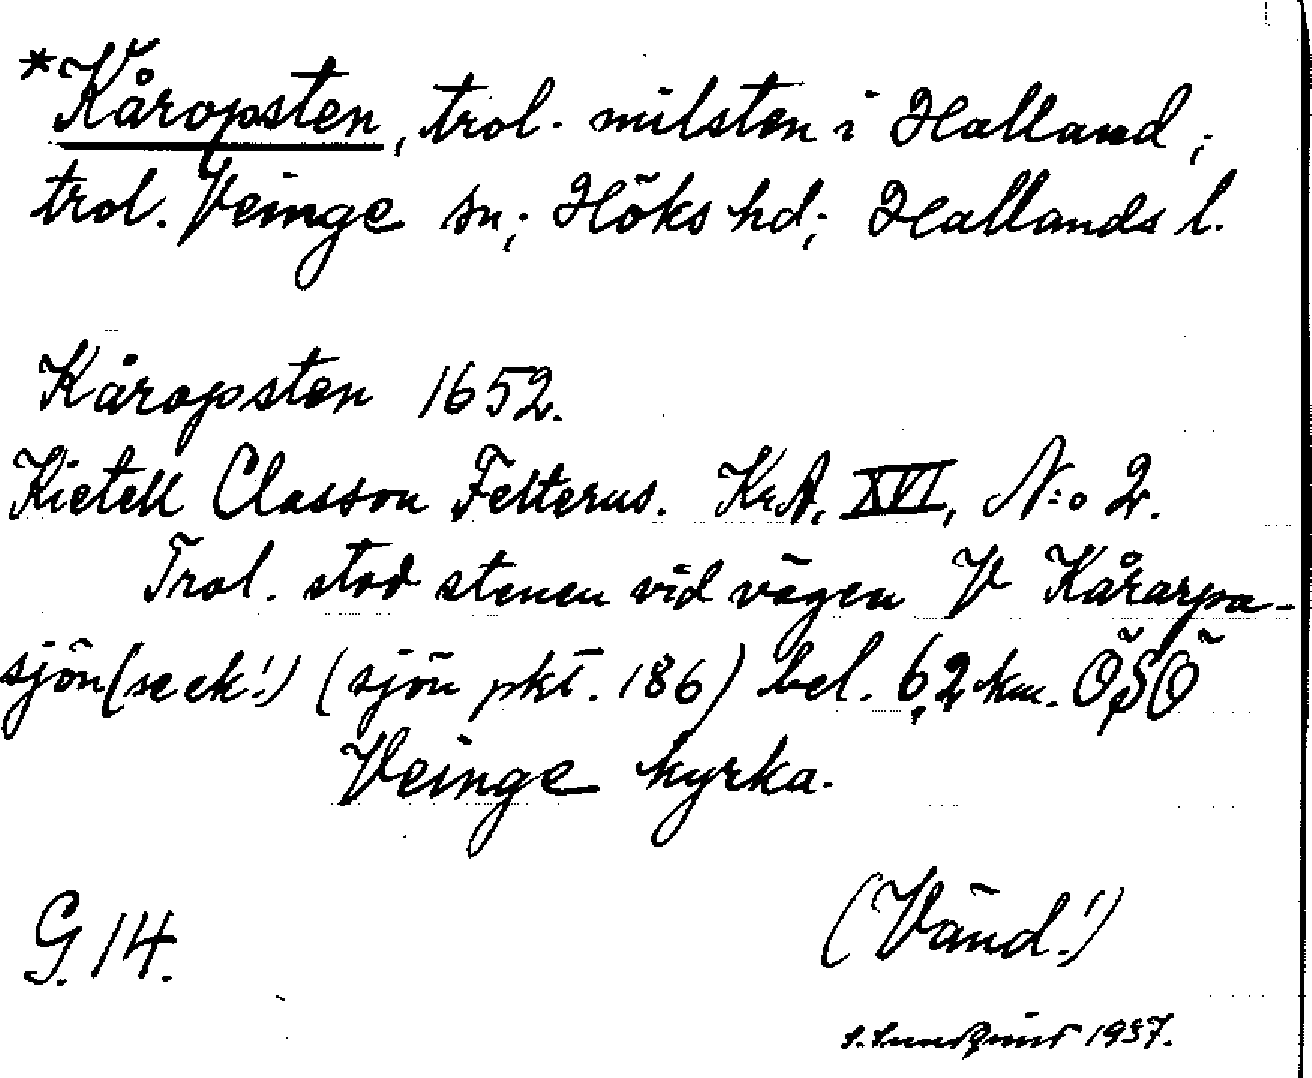 *Kåropsten, trol. milsten i Halland;
trol. Veinge sn; Höks hd; Hallands l.
Kåropsten 1652.
Kietell Classon Felterus. KrA. XVI, N:o 2.
Trol. stod stenen vid vägen V Kårarpa-
sjön (se ek!) (sjön pkt. 186) bel. 6,2 km. ÖSÖ
Veinge kyrka.
G. 14.
(Vänd!)
1937.